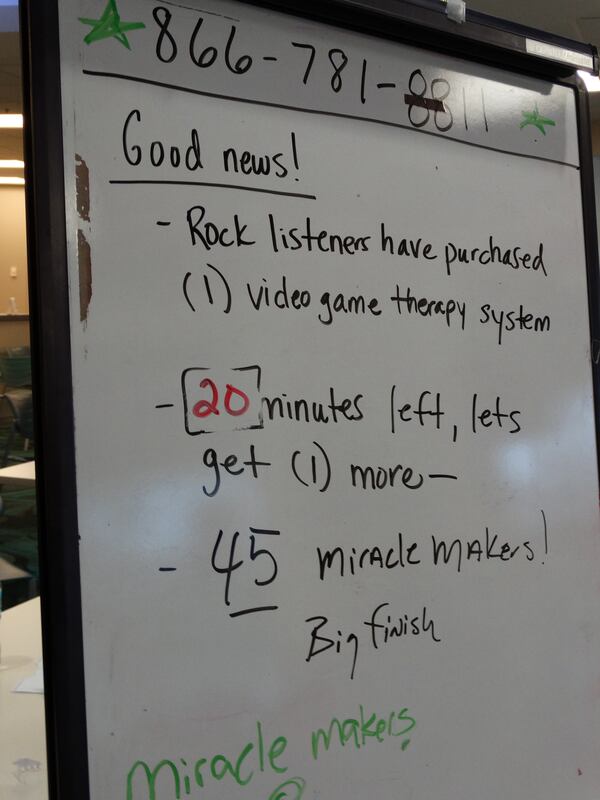 866-781-8811
Good news!
- Rock listeners have purchased
(1) video game therapy system
- 20 minutes left, lets
get (1) more —
- 45 miracle makers!
Big finish
miracle makers